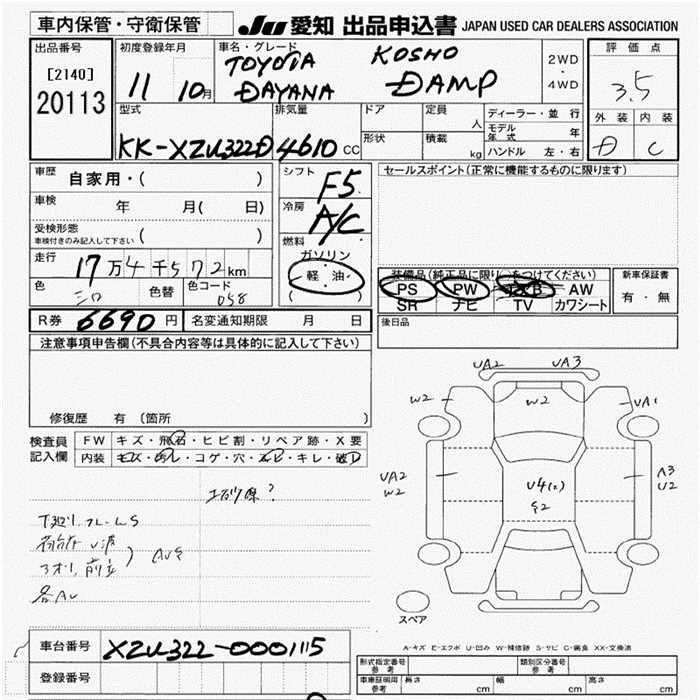 車内保管・守衛保管
JU 愛知 出品申込書 JAPAN USED CAR DEALERS ASSOCIATION
出品番号
[2140]
20113
初度登録年月
11 10月
車名・グレード
TOYOTA KOSHO
DAYANA DAMP
2WD
・
4WD
評価点
3.5
外装 内装
D C
型式
KK-XZU322D
排気量
4610 CC
ドア
形状
定員
人
積載
kg
ディーラー・並行
モデル年式 年
ハンドル 左・右
車歴
自家用・( )
車検 年 月( 日)
受検形態
車検付きのみ記入して下さい ( )
走行 17万4千572km
色 シロ 色替 色コード 058
R券 6690 円 名変通知期限 月 日
シフト
F5
冷房
A/C
燃料
ガソリン
・
軽油
( )
セールスポイント(正常に機能するものに限ります)
装備品(純正品に限り○をつけてください)
PS PW AW
SR ナビ TV カワシート
新車保証書
有・無
後日品
注意事項申告欄(不具合内容等は具体的に記入して下さい)
修復歴 有 〔箇所 〕
検査員
記入欄
FW キズ・飛石・ヒビ割・リペア跡・X要
内装 キズ・汚レ・コゲ・穴・スレ・キレ・破レ
各AU
UA2 UA3
W2 W2 UA1
UA2
W2
A3
U2
U4(2)
S2
スペア
A-キズ E-エクボ U-凹み W-補修跡 S-サビ C-腐食 XX-交換済
車台番号 XZU322-0001115
登録番号
型式指定番号
参考
類別区分番号
参考
車庫証明用
参考
長さ cm 幅 cm 高さ cm